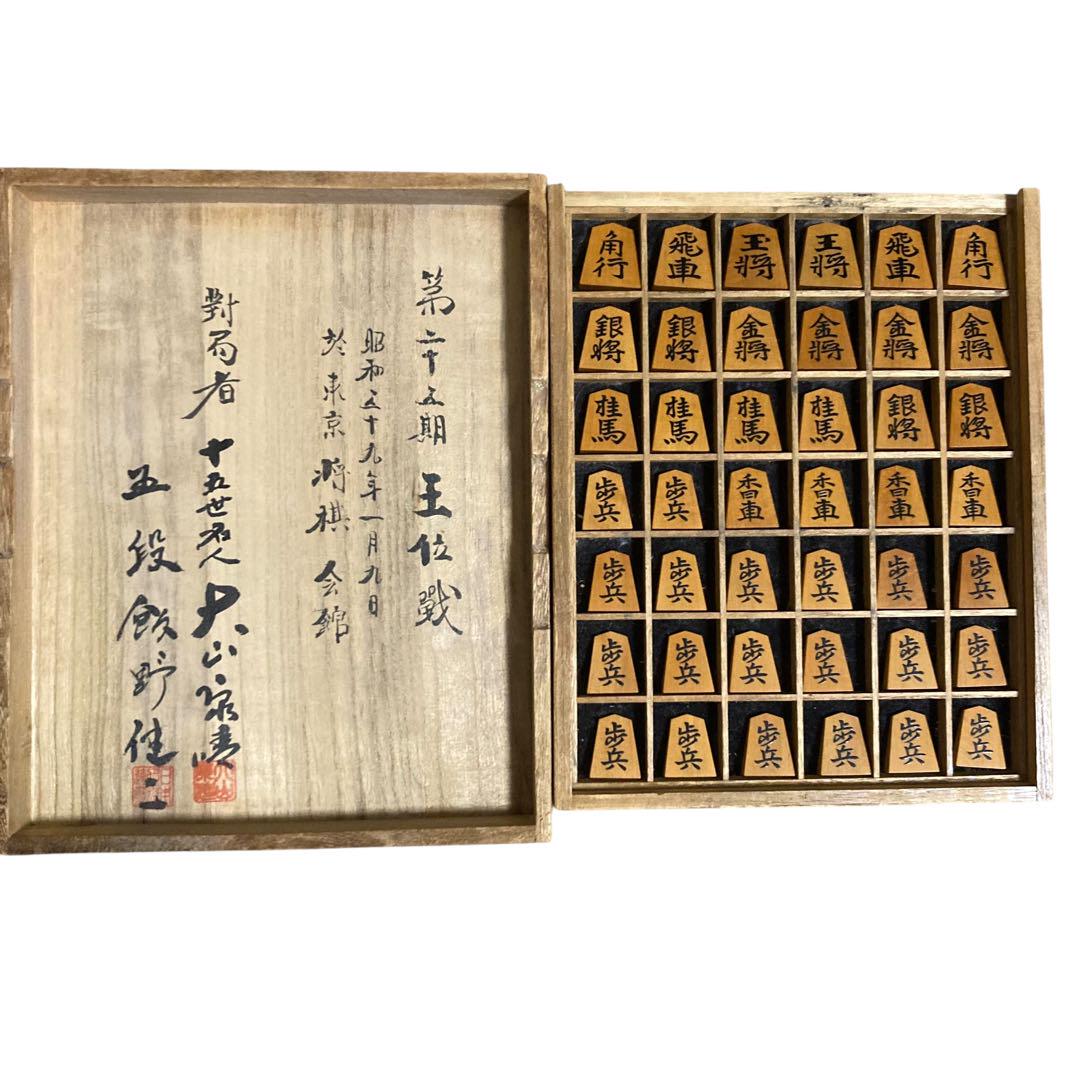 第二十五期 王位戦
昭和五十九年一月九日
於 東京 将棋 会館
對局者 十五世名人 大山康晴
五段 飯野健二
角行 飛車 玉将 王将 飛車 角行
銀将 銀将 金将 金将 金将 金将
桂馬 桂馬 桂馬 桂馬 銀将 銀将
歩兵 歩兵 香車 香車 香車 香車
歩兵 歩兵 歩兵 歩兵 歩兵 歩兵
歩兵 歩兵 歩兵 歩兵 歩兵 歩兵
歩兵 歩兵 歩兵 歩兵 歩兵 歩兵